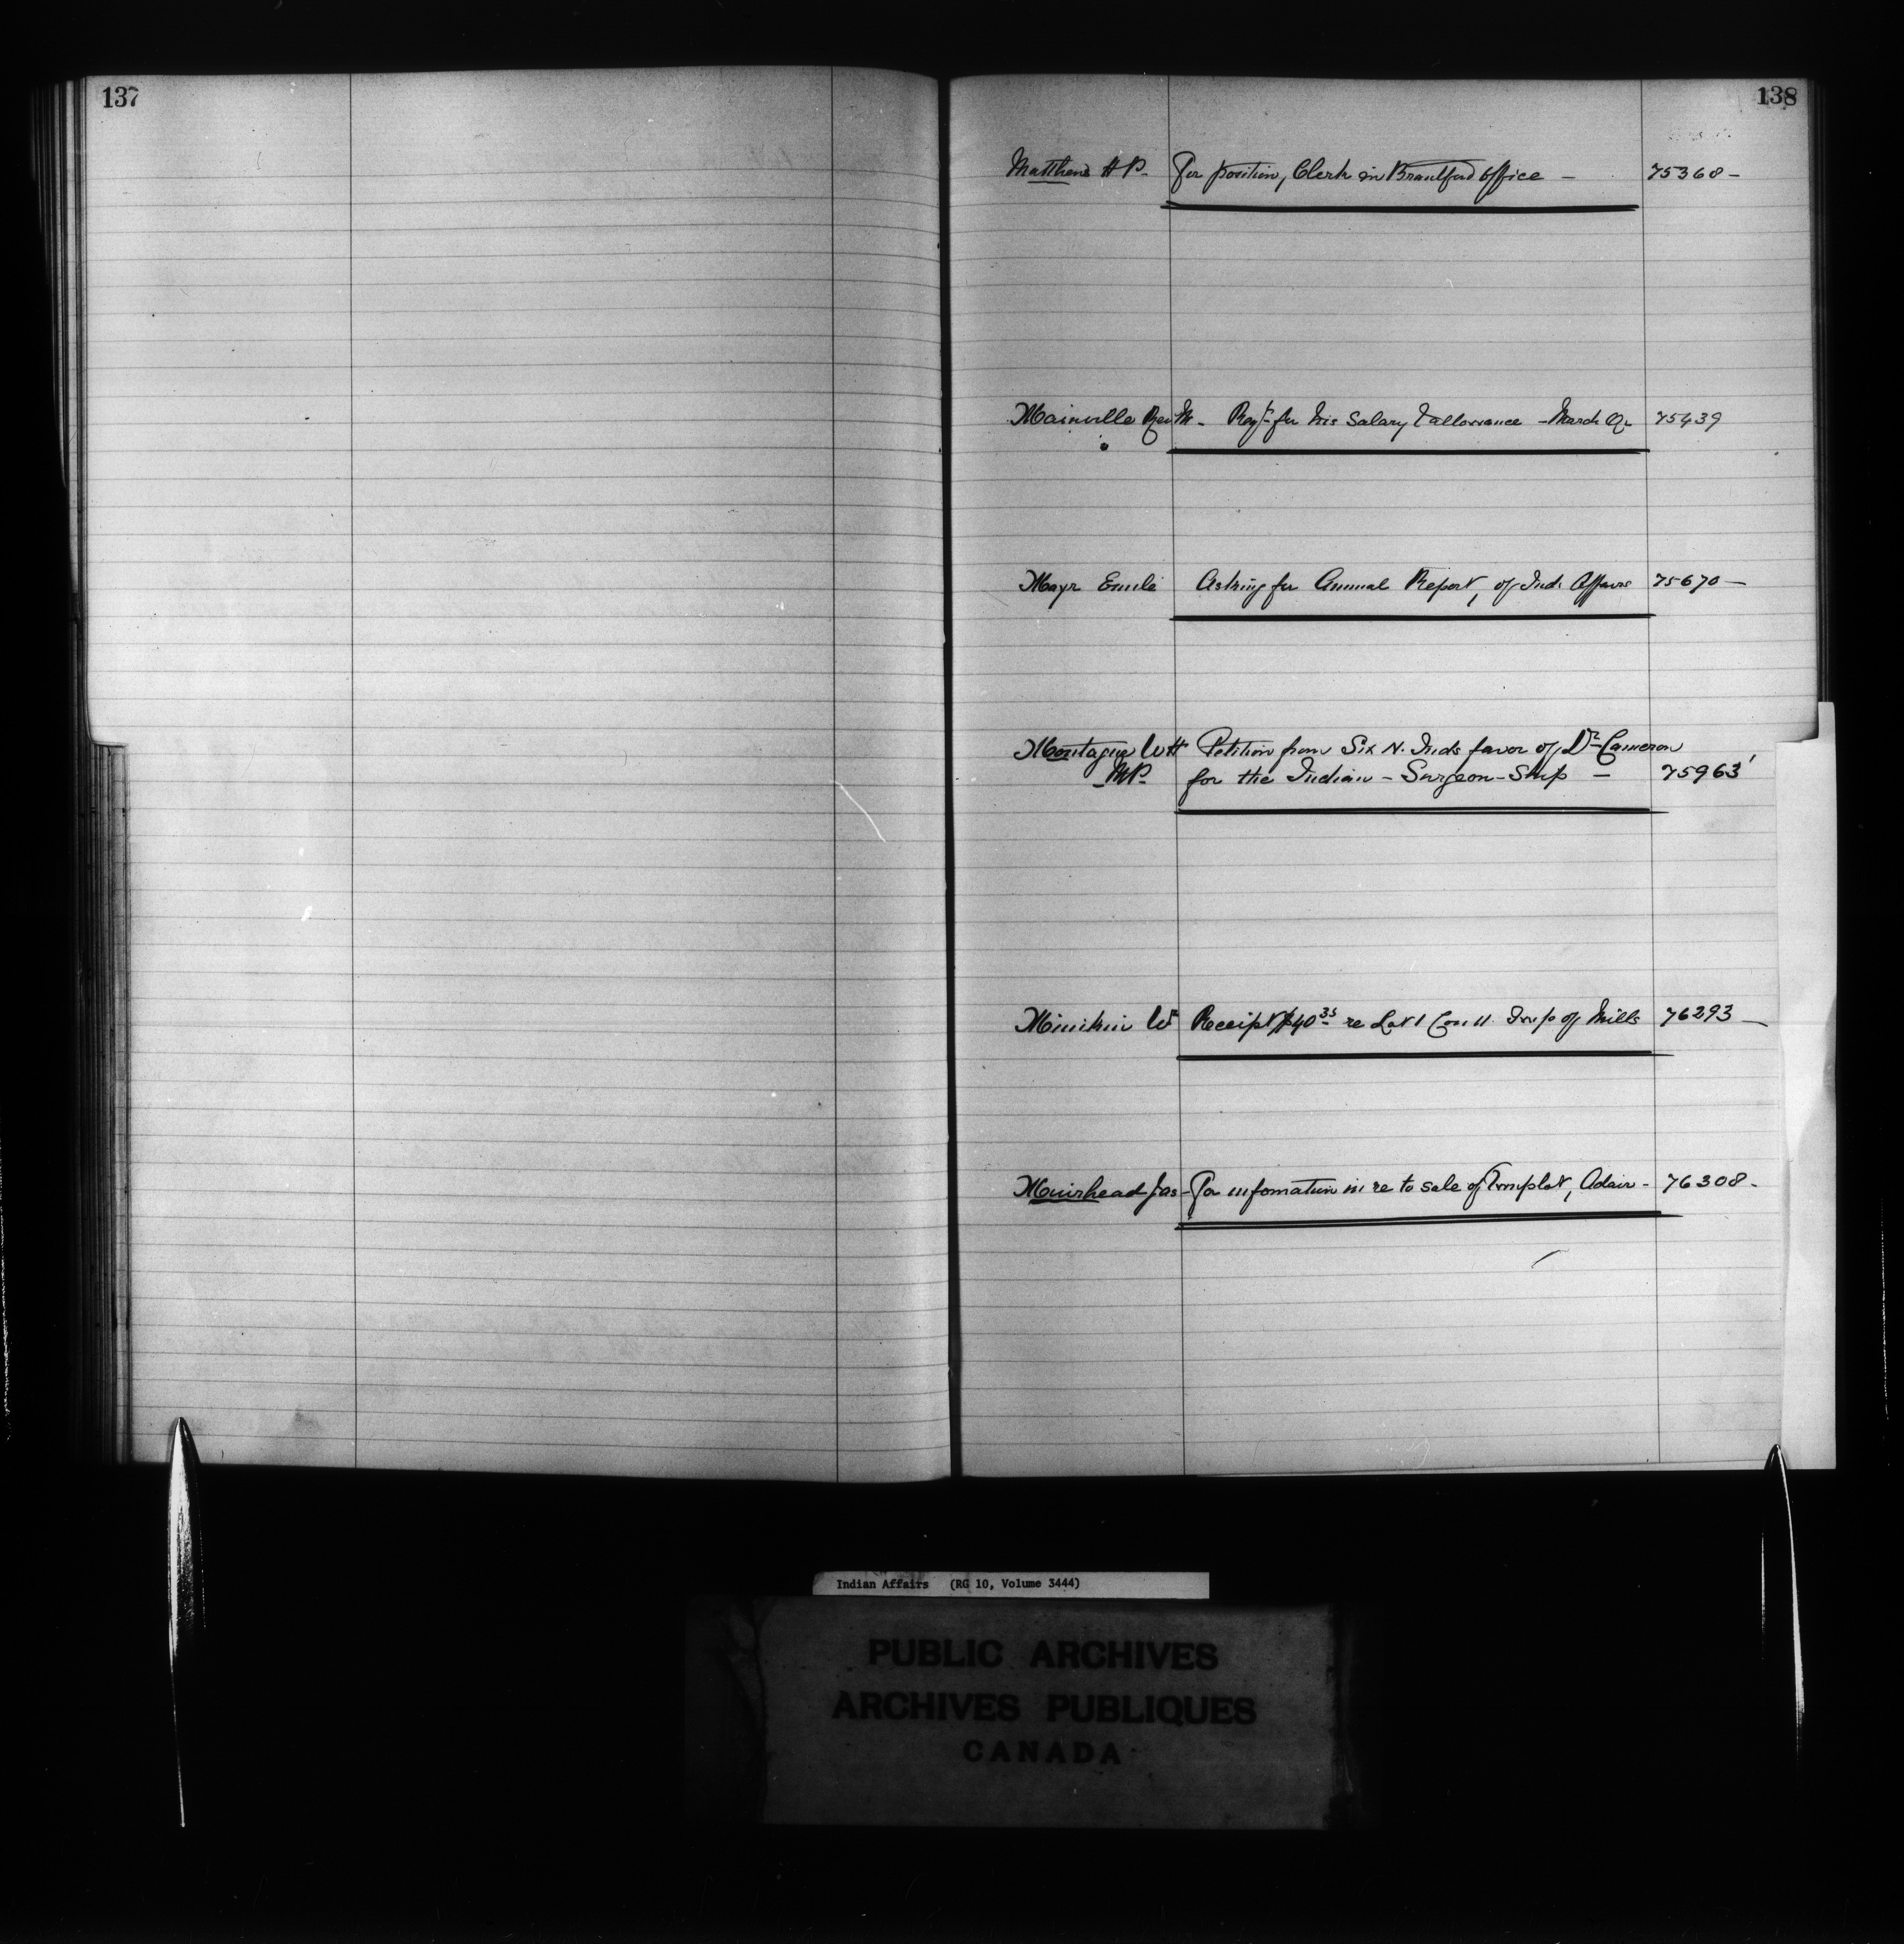 137
138
Matthews H P. For position, Clerk in Brantford Office – 75368 –
Mainville Rev M. Reqt. for his Salary & allowance – March Qr 75439
Mayr Emile Asking for Annual Report, of Ind. Affairs 75670 –
Montague W H Petition from Six N. Inds favor of Dr Cameron
M.P. for the Indian – Surgeon – Ship – 75963
W Receipt $40 35 re Lot 1 Con 11 Twp of Mills 76293 –
Muirhead Jas – For information in re to sale of Townplot, Adair – 76308 –
Indian Affairs (RG 10, Volume 3444)
PUBLIC ARCHIVES
ARCHIVES PUBLIQUES
CANADA